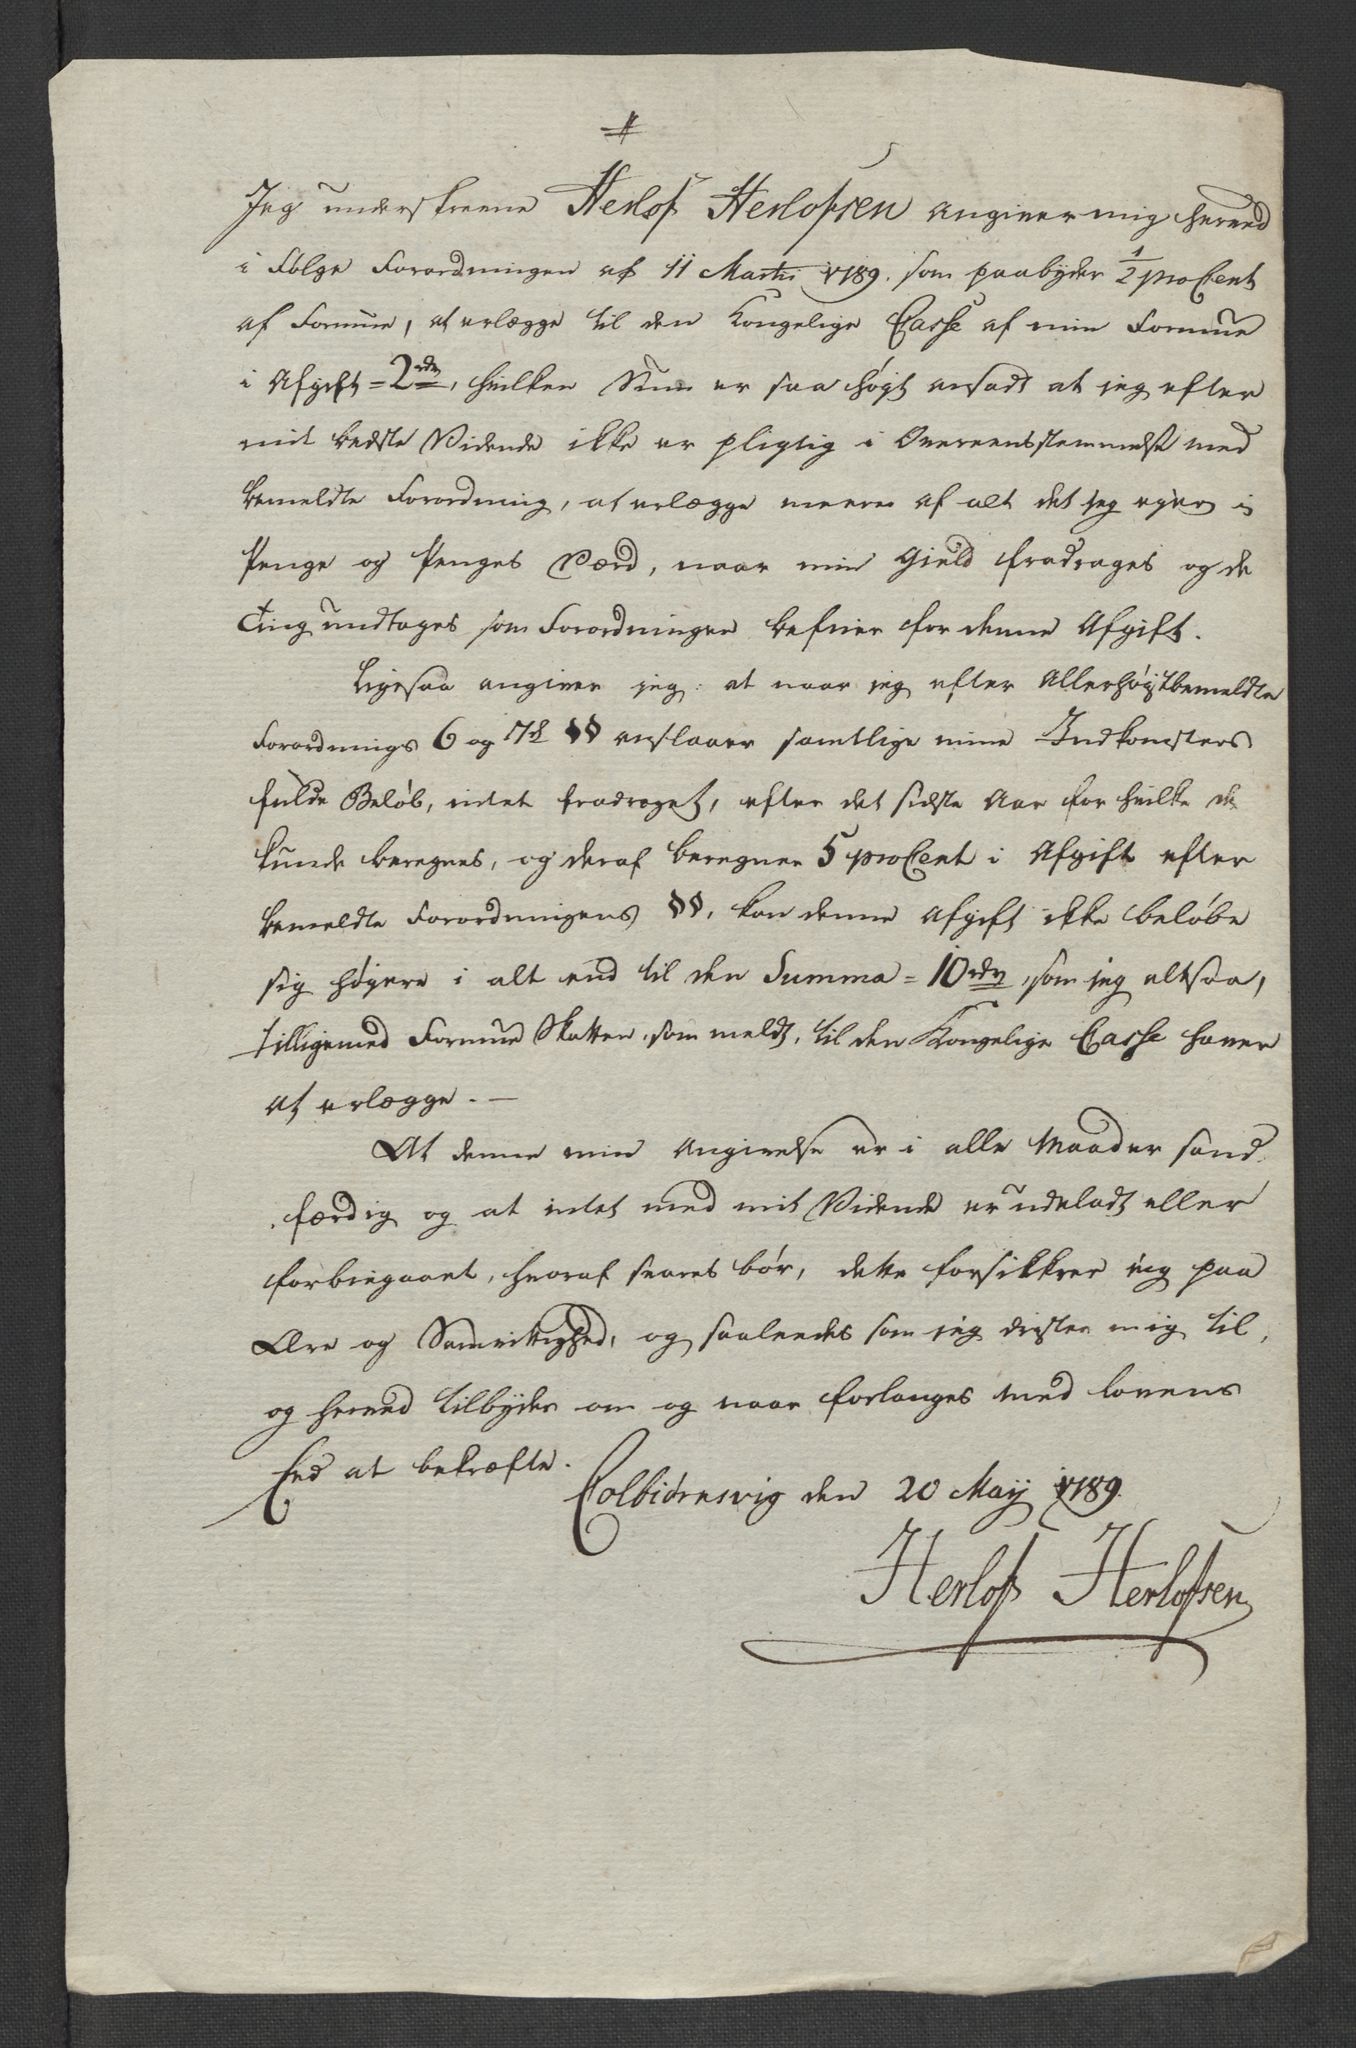 Jeg underskreene Herlof Herlofsen angiver mig herved
i Følge Forordningen af 11 Martii 1789. som paabyder 1/2 proCent
af Formue, at erlægge til den Kongelige Casse af min Formue
i Afgift = 2 rdr, hvilken Sum er saa høyt ansadt at jeg efter
mit bedste Vidende ikke er pligtig i Overeensstemmelse med
bemeldte Forordning, at erlægge meere af alt det jeg eyer i
Penge og Penges Værd, naar min Gield fradrages og de
Ting undtages som Forordningen befrier for denne Afgift.
Ligesaa angiver jeg: at naar jeg efter Allerhøystbemeldte
Forordnings 6 og 7de §§ anslaaer samtlige mine Indkomsters
fulde Beløb, intet fradraget, efter det sidste Aar for hvilke de
kunde beregnes, og deraf beregner 5 proCent i Afgift efter
bemeldte Forordningens §§, kan denne Afgift ikke beløbe
sig høyere i alt end til den Summa = 10 rdr, som jeg altsaa,
tilligemed Formue Skatten, som meldt, til den Kongelige Casse haver
at erlægge. —
At denne min Angivelse er i alle Maader sand-
færdig og at intet med mit Vidende er udeladt eller
forbiegaaet, hvoraf svares bør, dette forsikkrer jeg paa
Ære og Samvittighed, og saaleedes som jeg drister mig til,
og herved tilbyder om og naar forlanges med Lovens
Eed at bekræfte.
Colbiørnsvig den 20 Maij 1789.
Herlof Herlofsen